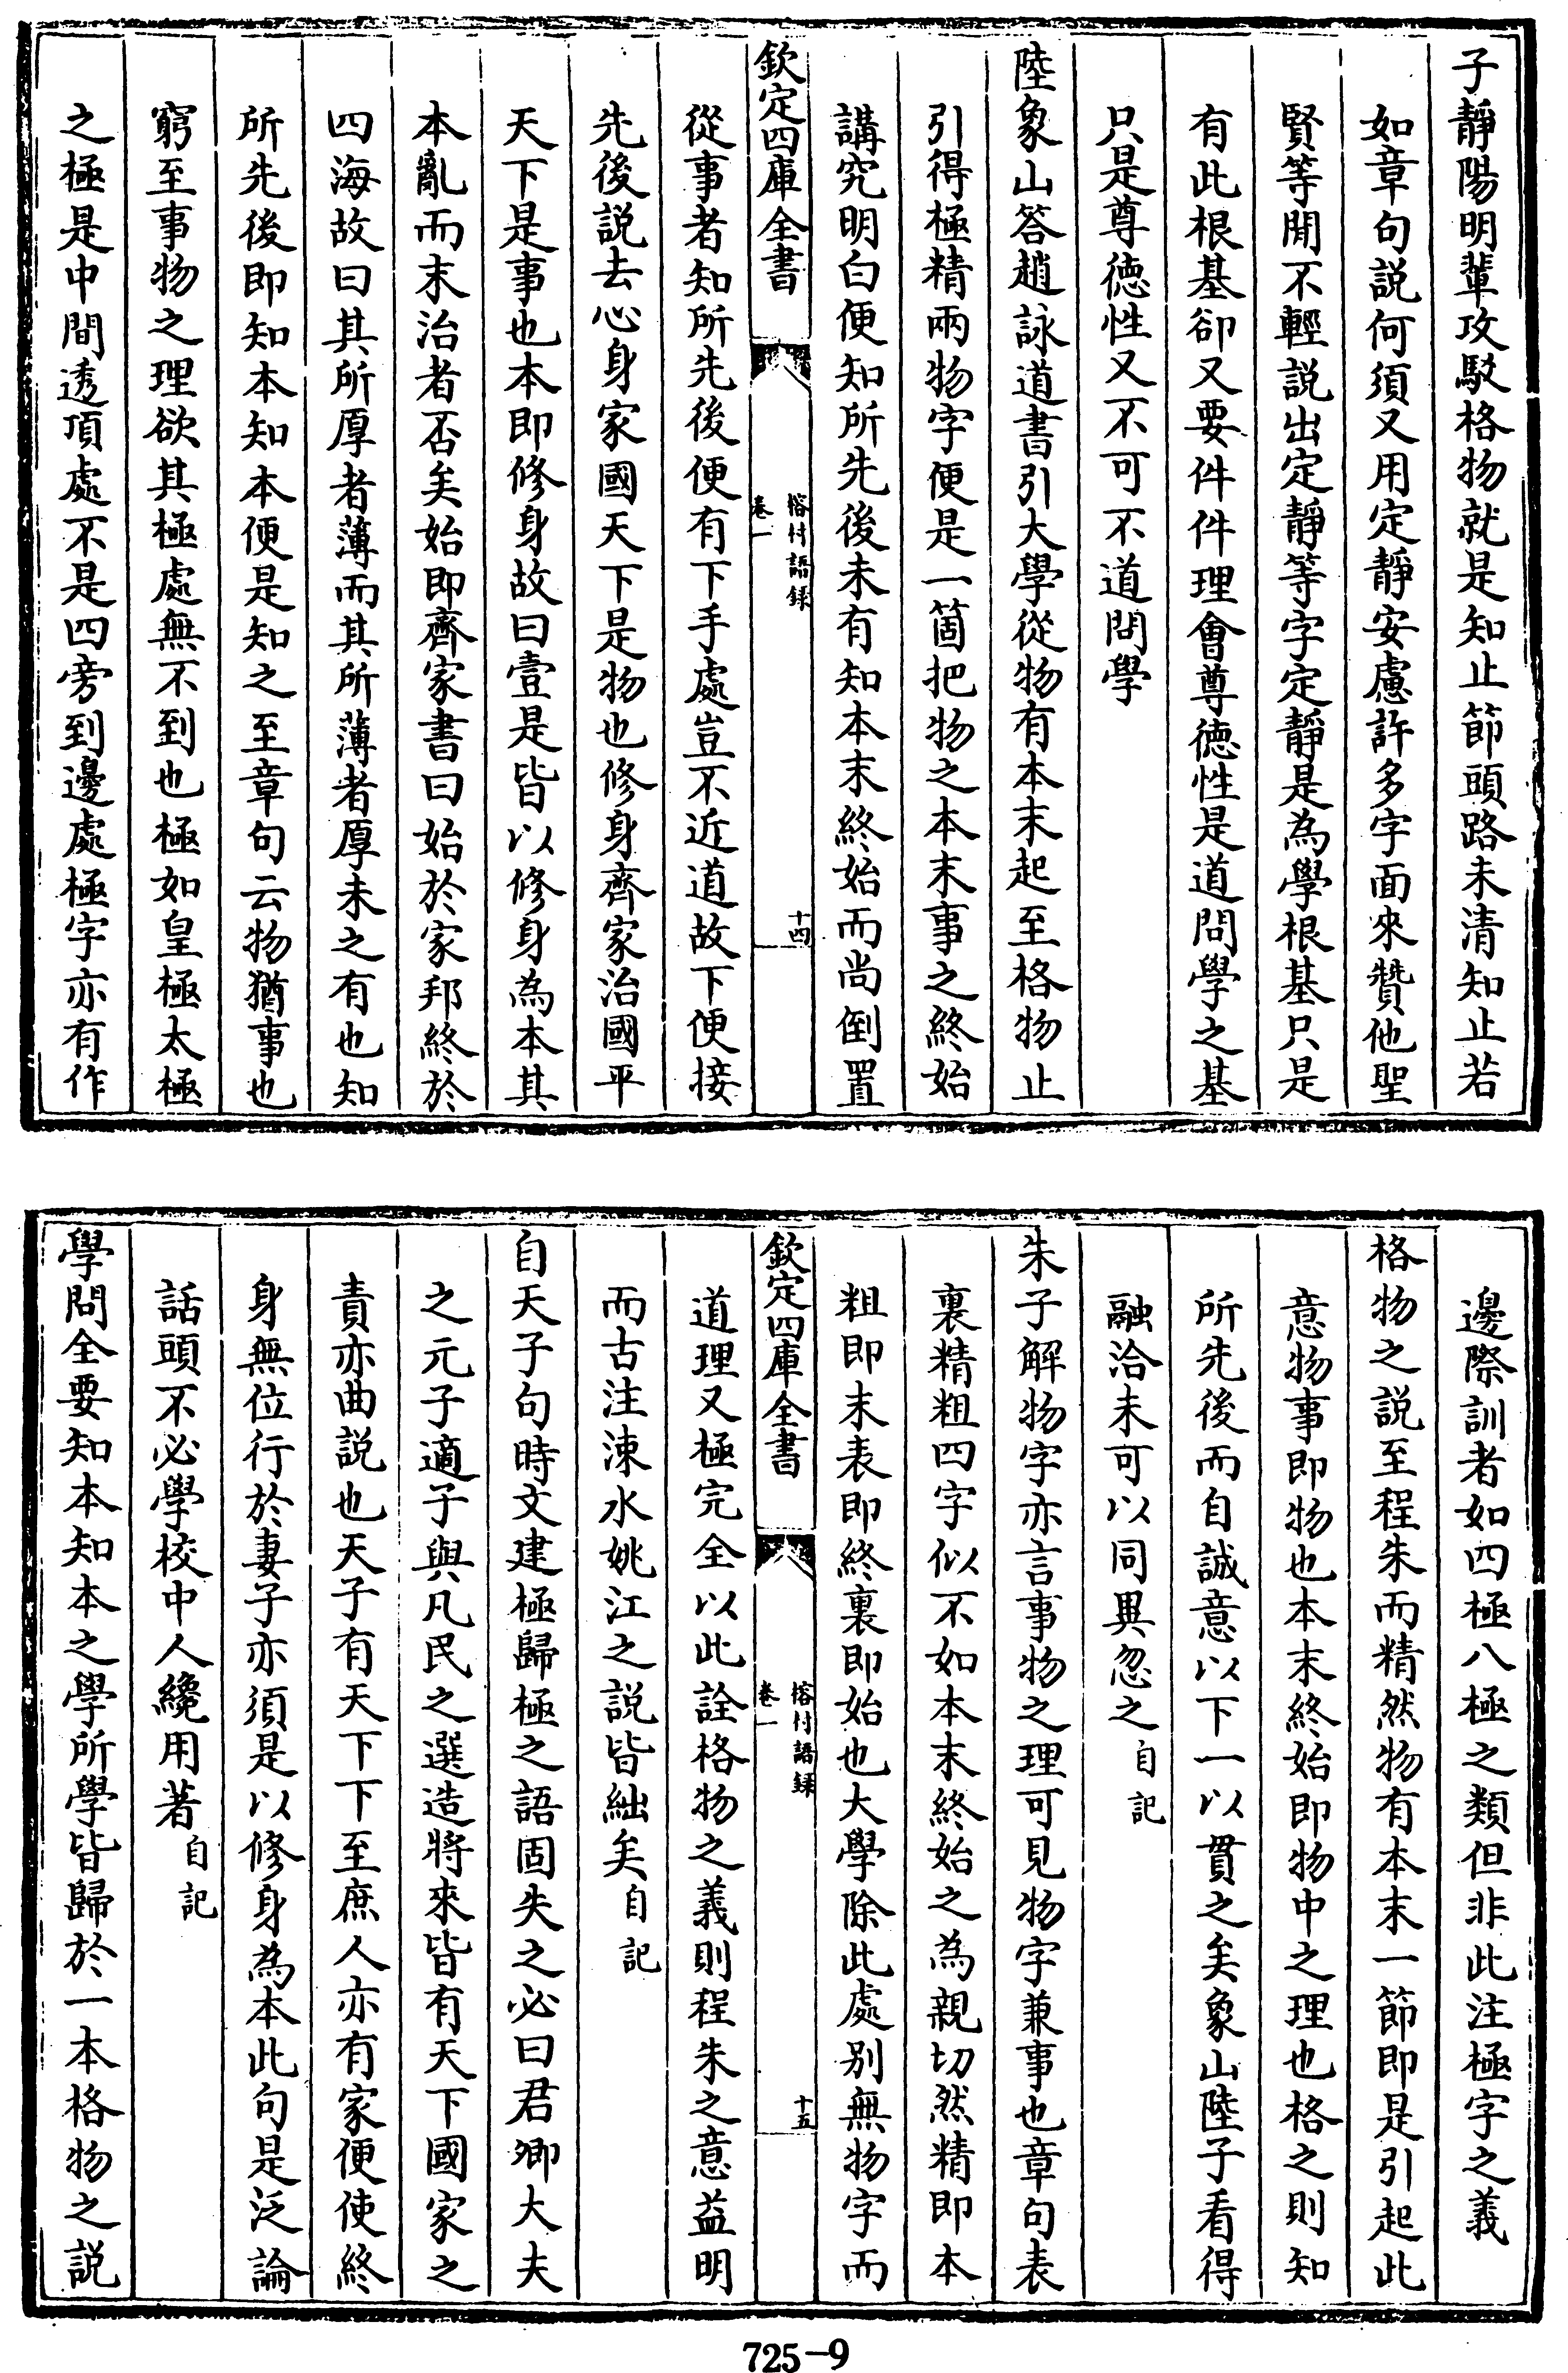 子靜陽明輩攻駁格物就是知止節頭路未清知止若
如章句説何須又用定靜安慮許多字面來贊他聖
賢等閒不輕説出定靜等字定靜是為學根基只是
有此根基卻又要件件理會尊徳性是道問學之基
只是尊徳性又不可不道問學
陸象山答趙詠道書引大學從物有本末起至格物止
引得極精兩物字便是一箇把物之本末事之終始
講究明白便知所先後未有知本末終始而尚倒置
欽定四庫全書
榕村語録
卷一
十四
從事者知所先後便有下手處豈不近道故下便接
先後説去心身家國天下是物也修身齊家治國平
天下是事也本即修身故曰壹是皆以修身為本其
本亂而末治者否矣始即齊家書曰始於家邦終於
四海故曰其所厚者薄而其所薄者厚未之有也知
所先後即知本知本便是知之至章句云物猶事也
窮至事物之理欲其極處無不到也極如皇極太極
之極是中間透頂處不是四旁到邊處極字亦有作
邊際訓者如四極八極之類但非此注極字之義
格物之説至程朱而精然物有本末一節即是引起此
意物事即物也本末終始即物中之理也格之則知
所先後而自誠意以下一以貫之矣象山陸子看得
融洽未可以同異忽之自記
朱子解物字亦言事物之理可見物字兼事也章句表
裏精粗四字似不如本末終始之為親切然精即本
粗即末表即終裏即始也大學除此處别無物字而
欽定四庫全書
榕村語録
卷一
十五
道理又極完全以此詮格物之義則程朱之意益明
而古注涑水姚江之説皆絀矣自記
自天子句時文建極歸極之語固失之必曰君卿大夫
之元子適子與凡民之選造將來皆有天下國家之
責亦曲説也天子有天下下至庶人亦有家便使終
身無位行於妻子亦須是以修身為本此句是泛論
話頭不必學校中人纔用著自記
學問全要知本知本之學所學皆歸於一本格物之説
725-9